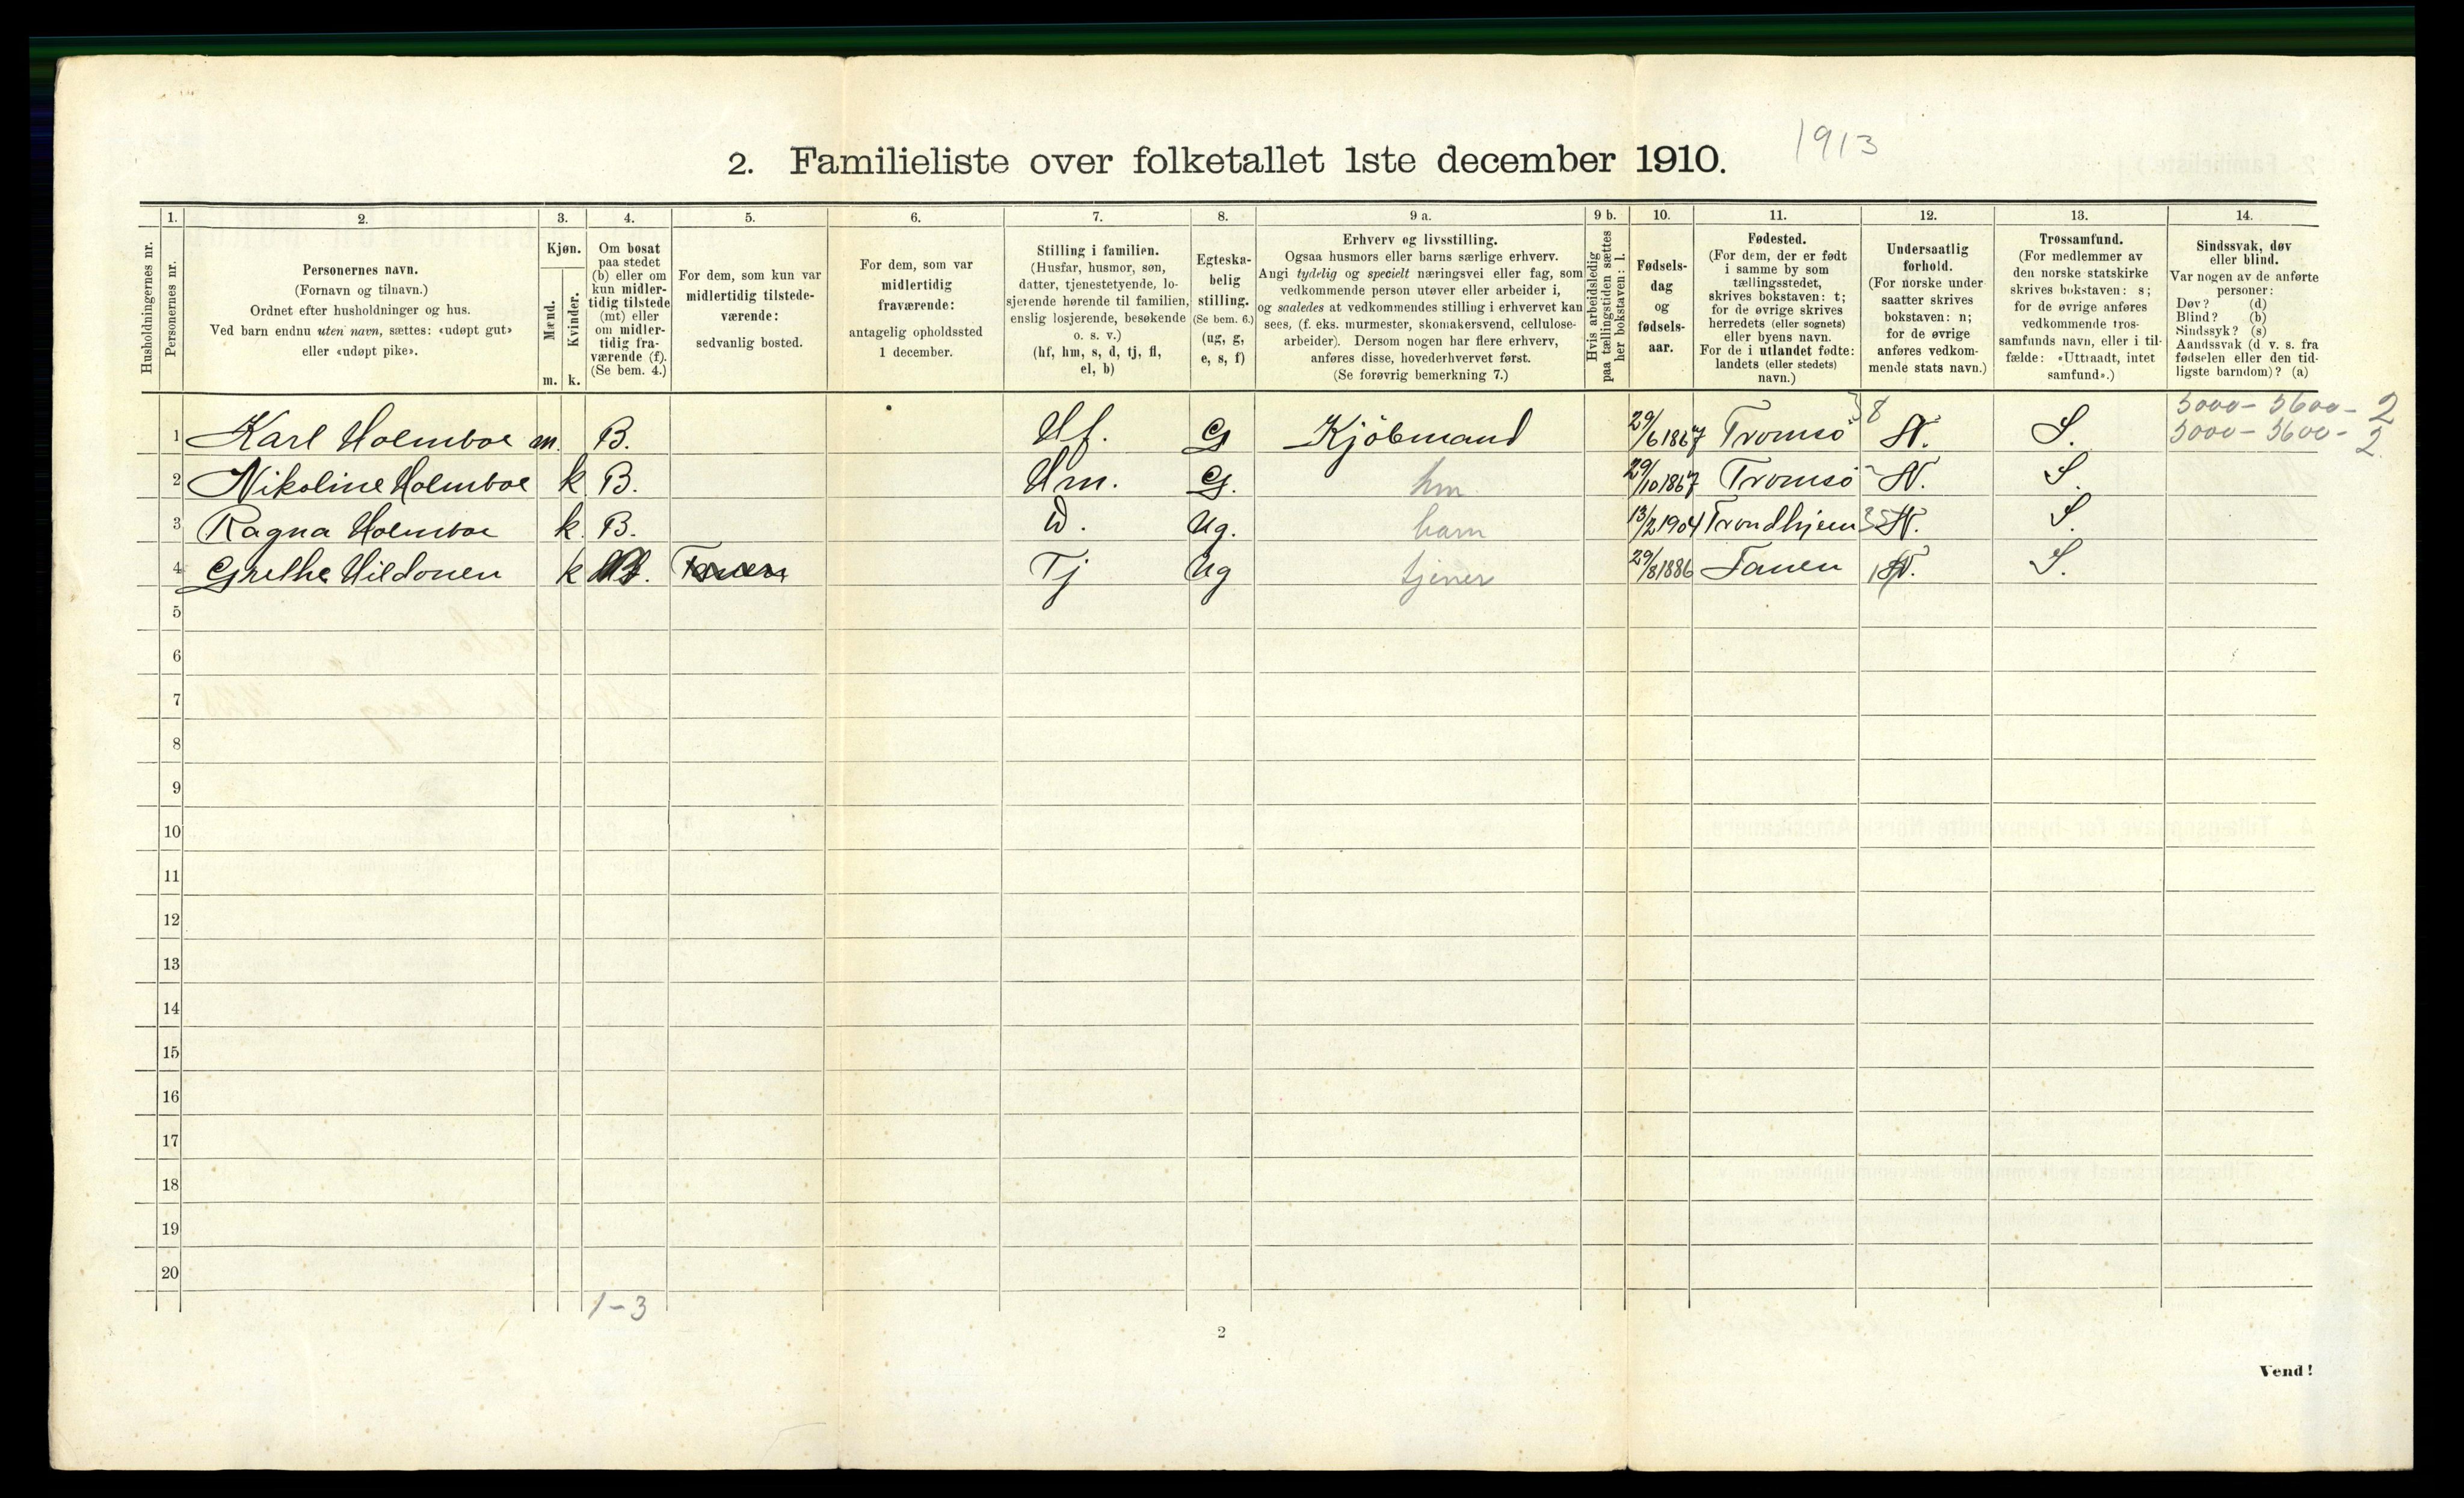 1913
2. Familieliste over folketallet 1ste december 1910.
Husholdningernes nr.
1.
Personernes nr.
2.
Personernes navn.
(Fornavn og tilnavn.)
Ordnet efter husholdninger og hus.
Ved barn endnu uten navn, sættes: «udøpt gut»
eller «udøpt pike».
3.
Kjøn.
Mænd.
Kvinder.
m. k.
4.
Om bosat
paa stedet
(b) eller om
kun midler-
tidig tilstede
(mt) eller
om midler-
tidig fra-
værende (f).
(Se bem. 4.)
5.
For dem, som kun var
midlertidig tilstede-
værende:
sedvanlig bosted.
6.
For dem, som var
midlertidig
fraværende:
antagelig opholdssted
1 december.
7.
Stilling i familien.
(Husfar, husmor, søn,
datter, tjenestetyende, lo-
sjerende hørende til familien,
enslig losjerende, besøkende
o. s. v.)
(hf, hm, s, d, tj, fl,
el, b)
8.
Egteska-
belig
stilling.
(Se bem. 6.)
(ug, g,
e, s, f)
9 a.
Erhverv og livsstilling.
Ogsaa husmors eller barns særlige erhverv.
Angi tydelig og specielt næringsvei eller fag, som
vedkommende person utøver eller arbeider i,
og saaledes at vedkommendes stilling i erhvervet kan
sees, (f. eks. murmester, skomakersvend, cellulose-
arbeider). Dersom nogen har flere erhverv,
anføres disse, hovederhvervet først.
(Se forøvrig bemerkning 7.)
9 b.
Hvis arbeidsledig
paa tællingstiden sættes
her bokstaven: l.
10.
Fødsels-
dag
og
fødsels-
aar.
11.
Fødested.
(For dem, der er født
i samme by som
tællingsstedet,
skrives bokstaven: t;
for de øvrige skrives
herredets (eller sognets)
eller byens navn.
For de i utlandet fødte:
landets (eller stedets)
navn.)
12.
Undersaatlig
forhold.
(For norske under
saatter skrives
bokstaven: n;
for de øvrige
anføres vedkom-
mende stats navn.)
13.
Trossamfund.
(For medlemmer av
den norske statskirke
skrives bokstaven: s;
for de øvrige anføres
vedkommende tros-
samfunds navn, eller i til-
fælde: «Uttraadt, intet
samfund».)
14.
Sindssvak, døv
eller blind.
Var nogen av de anførte
personer:
Døv? (d)
Blind? (b)
Sindssyk? (s)
Aandssvak (d. v. s. fra
fødselen eller den tid-
ligste barndom)? (a)
5000 - 5600 - 2
1 Karl Holmboe m. B. Hf. G Kjöbmand 29/6 1867 Tromsö 8 N. S. 5000 - 5600 - 2
2 Nikoline Holmboe k B. Hm. G. hm 29/10 1867 Tromsö N. S.
3 Ragna Holmboe k. B. D. Ug. barn 13/2 1904 Trondhjem 35 N. S.
4 Grethe Hildonen k Tanen Tj Ug tjener 29/8 1886 Tanen N. S.
5
6
7
8
9
10
11
12
13
14
15
16
17
18
19
20
1-3
2
Vend!